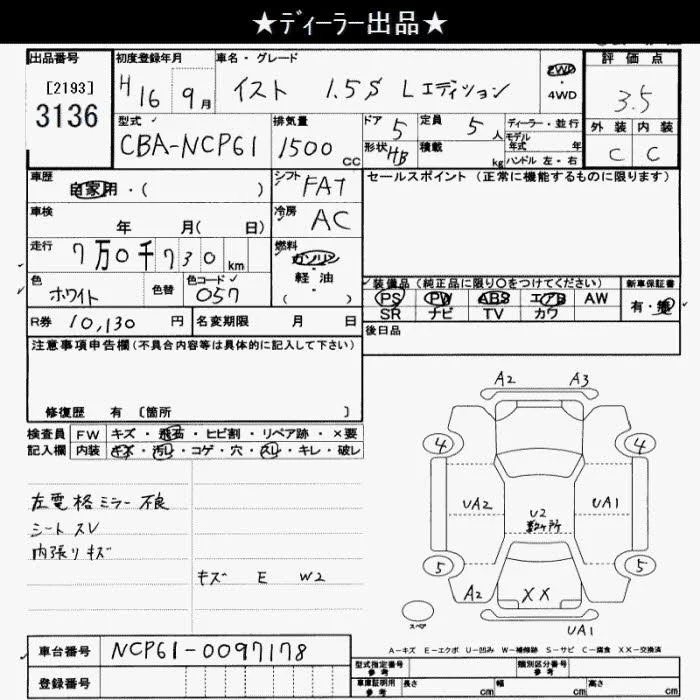 ★ディーラー出品★
出品番号
[2193]
3136
初度登録年月
H16 9月
車名・グレード
イスト 1.5S Lエディション
2WD
・4WD
評価点
3.5
外装 内装
C C
型式
CBA-NCP61
排気量
1500 cc
ドア 5
定員 5人
形状 HB
積載 kg
ディーラー・並行
モデル年式 年
ハンドル 左・右
車歴
自家用・( )
シフト FAT
冷房 AC
セールスポイント (正常に機能するものに限ります)
車検
年 月( 日)
走行
7万0千730km
燃料
ガソリン
・軽油
( )
色
ホワイト
色替
色コード
057
装備品(純正品に限り○をつけてください)
PS PW ABS エアB AW
SR ナビ TV カワ
新車保証書
有・無
R券 10,130円
名変期限 月 日
後日品
注意事項申告欄(不具合内容等は具体的に記入して下さい)
修復歴 有 〔箇所 〕
検査員記入欄
FW キズ・飛石・ヒビ割・リペア跡・×要
内装 キズ・汚レ・コゲ・穴・スレ・キレ・破レ
左電格ミラー不良
シートスレ
内張りキズ
キズ E W2
A2 A3
4 4
UA2 UA1
U2
数ヶ所
5 5
A2 XX
スペア
UA1
A-キズ E-エクボ U-凹み W-補修跡 S-サビ C-腐食 XX-交換済
車台番号 NCP61-0097178
登録番号
型式指定番号 参考
類別区分番号 参考
車庫証明用 参考 長さ cm 幅 cm 高さ cm